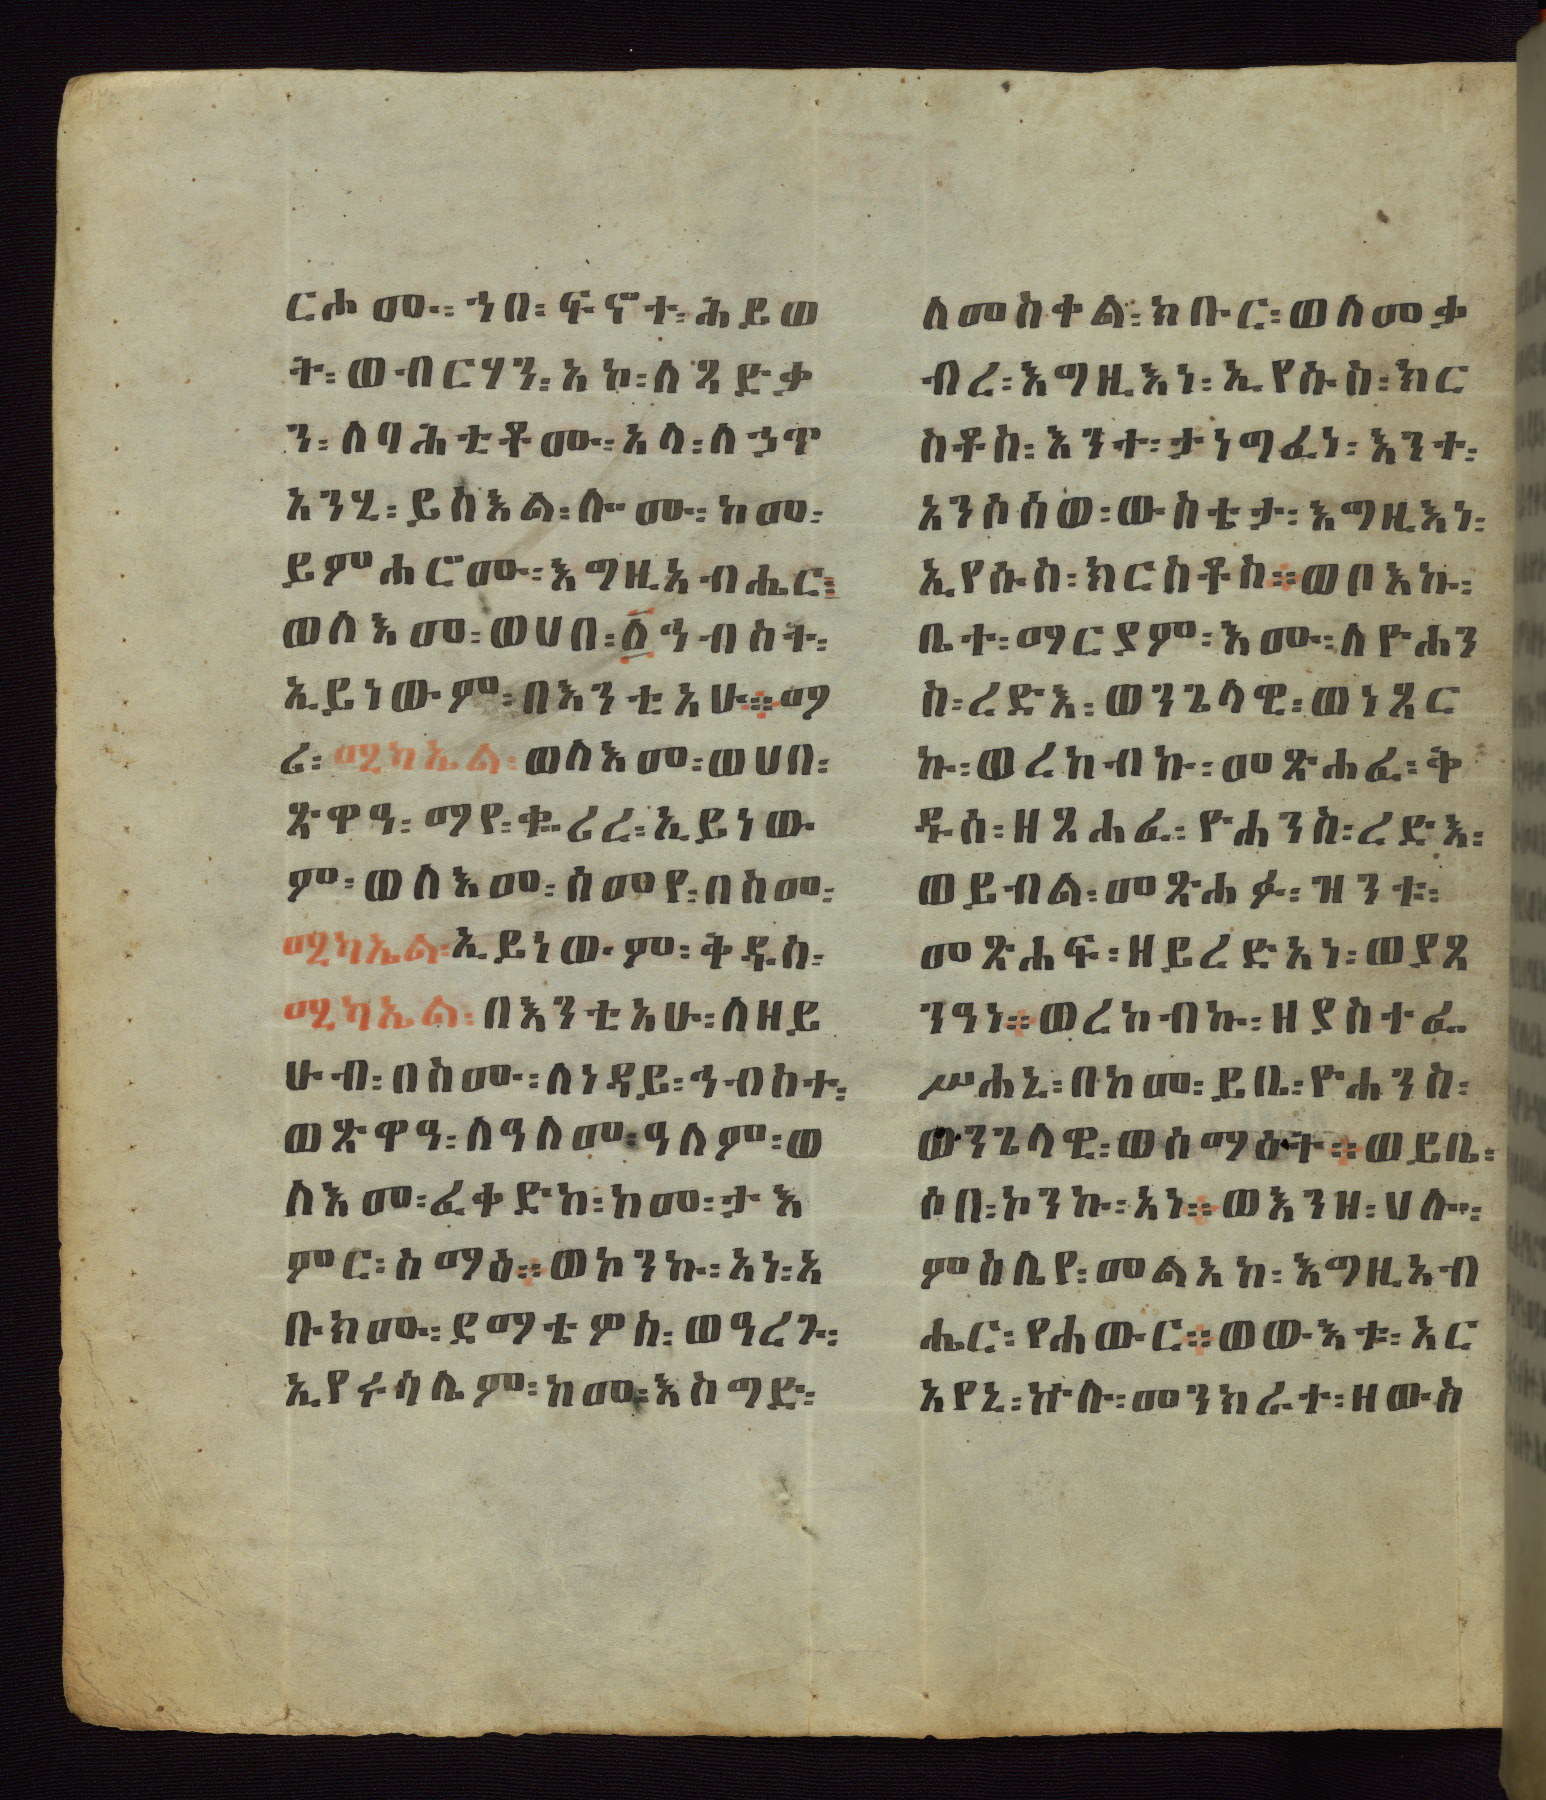 ርሖሙ፡ ኀበ፡ ፍኖተ፡ ሕይወ
ት፡ ወብርሃን፡ አኮ፡ ለጻድቃ
ን፡ ለባሕቲቶሙ፡ አላ፡ ለኃጥ
አንሂ፡ ይስእል፡ ሎሙ፡ ከመ፡
ይምሐሮሙ፡ እግዚአብሔር፡
ወለእመ፡ ወሀበ፡ ፩ኅብስት፡
ኢይነውም፡ በእንቲአሁ። ማ
ሪ፡ ሚካኤል፡ ወለእመ፡ ወሀበ፡
ጽዋዓ፡ ማየ፡ ቈሪረ፡ ኢይነው
ም፡ ወለእመ፡ ሰመየ፡ በስመ፡
ሚካኤል፡ ኢይነውም፡ ቅዱስ፡
ሚካኤል፡ በእንቲአሁ፡ ለዘይ
ሁብ፡ በስሙ፡ ለነዳይ፡ ኅብስተ፡
ወጽዋዓ፡ ለዓለመ፡ ዓለም፡ ወ
ለእመ፡ ፈቀድከ፡ ከመ፡ ታእ
ምር፡ ስማዕ። ወኮንኩ፡ አነ፡ አ
ቡክሙ፡ ደማቴዎስ፡ ወዓረጉ፡
ኢየሩሳሌም፡ ከመ፡ እስግድ፡
ለመስቀል፡ ክቡር፡ ወለመቃ
ብረ፡ እግዚእነ፡ ኢየሱስ፡ ክር
ስቶስ፡ እንተ፡ ታነግፈነ፡ እንተ፡
አንሶሰወ፡ ውስቴታ፡ እግዚእነ፡
ኢየሱስ፡ ክርስቶስ። ወቦእኩ፡
ቤተ፡ ማርያም፡ እሙ፡ ለዮሐን
ስ፡ ረድእ፡ ወንጌላዊ፡ ወነጻር
ኩ፡ ወረከብኩ፡ መጽሐፈ፡ ቅ
ዱሰ፡ ዘጸሐፈ፡ ዮሐንስ፡ ረድእ፡
ወይብል፡ መጽሐፉ፡ ዝንቱ፡
መጽሐፍ፡ ዘይረድአነ፡ ወያጸ
ንዓነ። ወረከብኩ፡ ዘያስተፈ
ሥሐኒ፡ በከመ፡ ይቤ፡ ዮሐንስ፡
ወንጌላዊ፡ ወሰማዕት። ወይቤ፡
ሶበ፡ ኮንኩ፡ አነ። ወእንዘ፡ ሀሎ፡
ምስሌየ፡ መልአከ፡ እግዚአብ
ሔር፡ የሐውር። ወውእቱ፡ አር
አየኒ፡ ኵሎ፡ መንክራተ፡ ዘውስ